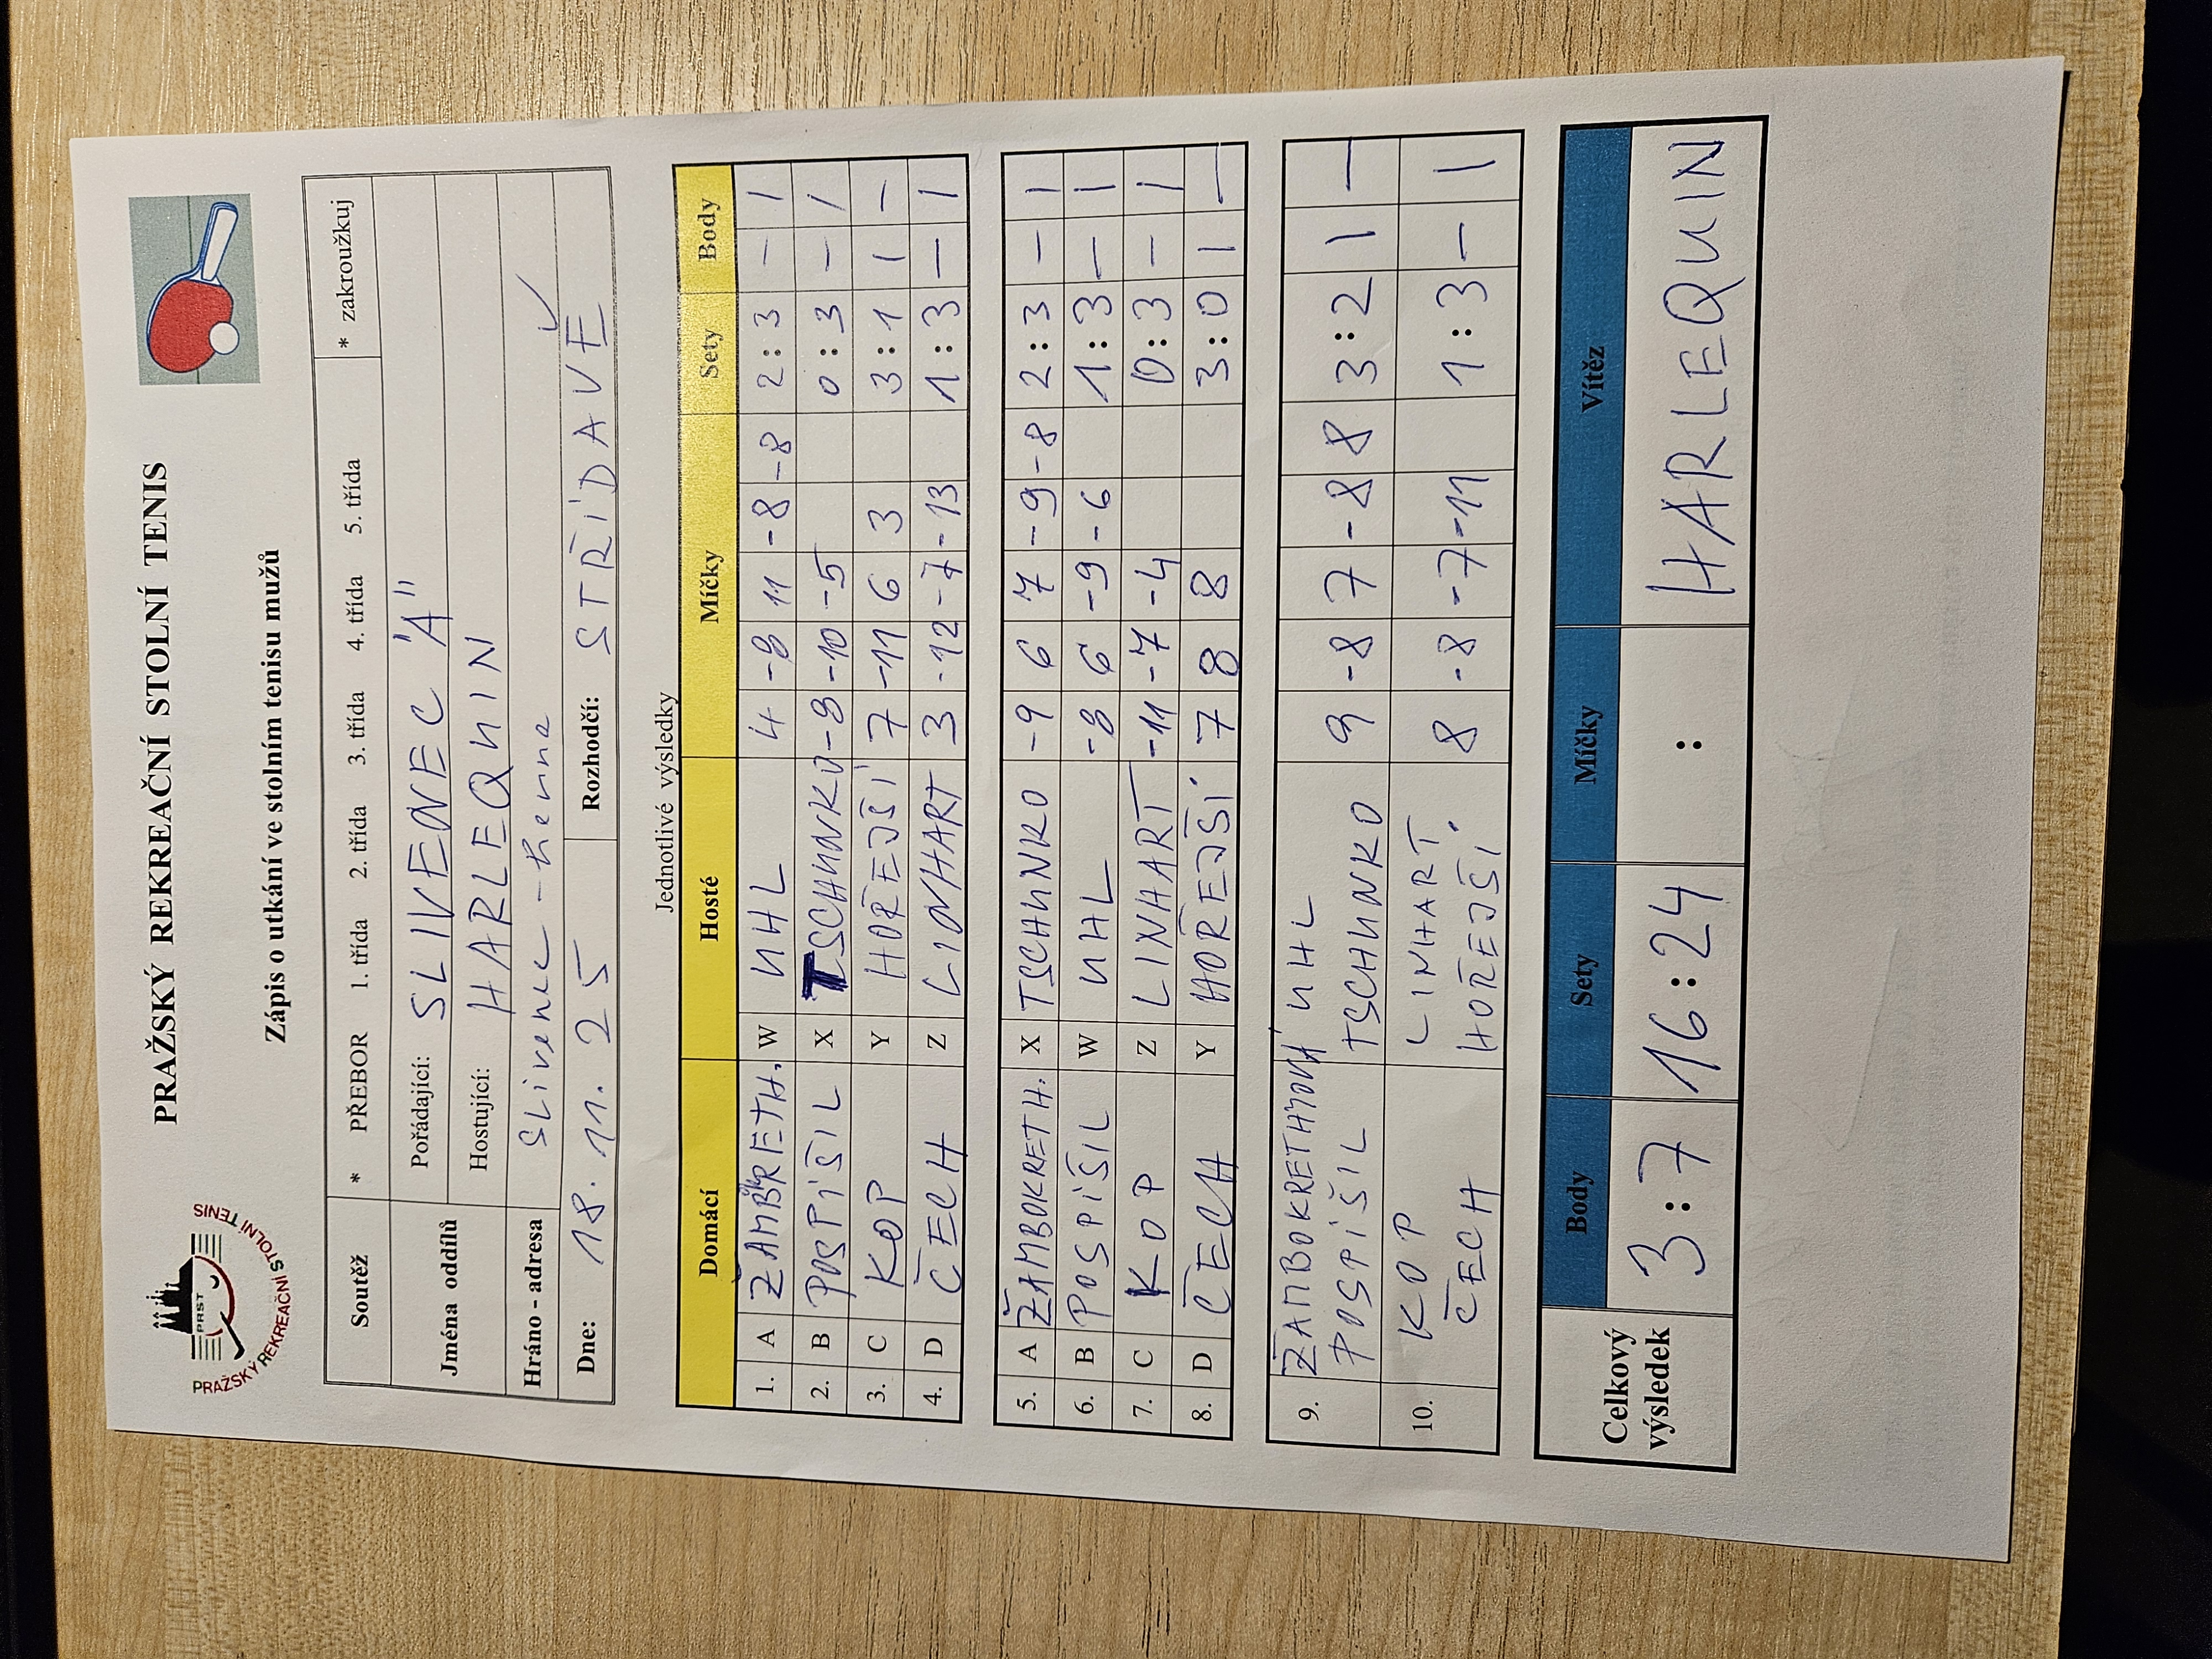 PRAŽSKÝ REKREAČNÍ STOLNÍ TENIS
PRST
PRAŽSKÝ REKREAČNÍ STOLNÍ TENIS
Zápis o utkání ve stolním tenisu mužů
Soutěž * PŘEBOR 1. třída 2. třída 3. třída 4. třída 5. třída * zakroužkuj
Jména oddílů Pořádající: SLIVENEC "A"
Hostující: HARLEQUIN
Hráno - adresa Slivenec - herna
Dne: 18. 11. 25 Rozhodčí: STŘÍDAVĚ
Jednotlivé výsledky
Domácí Hosté Míčky Sety Body
1. A ŽAMBOKRETH. W UHL 4 -9 11 -8 -8 2:3 – 1
2. B POSPÍŠIL X TSCHUNKO -9 -10 -5 0:3 – 1
3. C KOP Y HOŘEJŠÍ 7 -11 6 3 3:1 1 –
4. D ČECH Z LINHART 3 -12 -7 -13 1:3 – 1
5. A ŽAMBOKRETH. X TSCHUNKO -9 6 7 -9 -8 2:3 – 1
6. B POSPÍŠIL W UHL -9 6 -9 -6 1:3 – 1
7. C KOP Z LINHART -11 -7 -4 0:3 – 1
8. D ČECH Y HOŘEJŠÍ 7 8 8 3:0 1 –
9. ŽAMBOKRETHOVÁ UHL 9 -8 7 -8 8 3:2 1 –
POSPÍŠIL TSCHUNKO
10. KOP LINHART 8 -8 -7 -11 1:3 – 1
ČECH HOŘEJŠÍ
Celkový výsledek Body Sety Míčky Vítěz
3:7 16:24 : HARLEQUIN